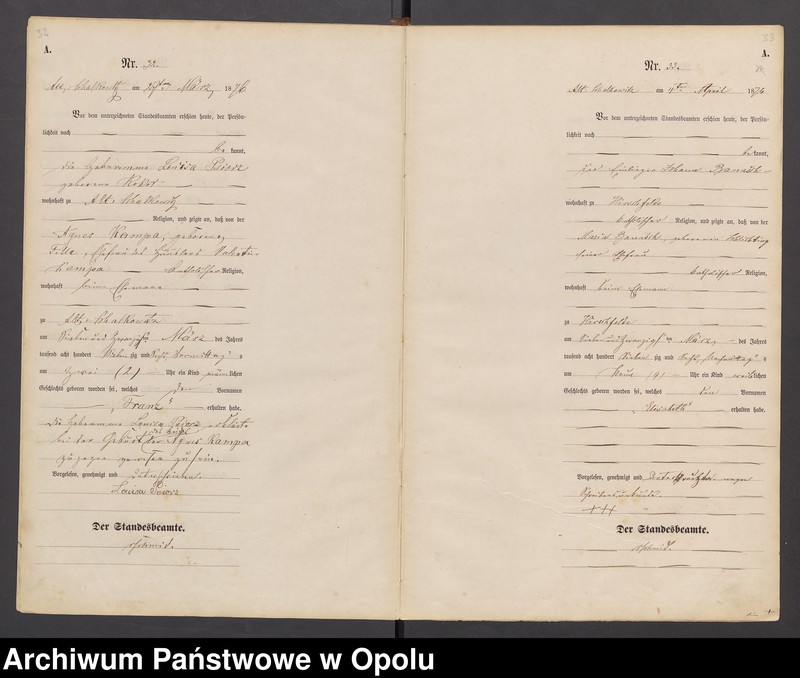 32
A.
Nr. 32.
Alt Schalkowitz am 28ten März 1876
Vor dem unterzeichneten Standesbeamten erschien heute, der Persön-
lichkeit nach
be kannt,
die Hebamme Louisa Piorz
geborene
wohnhaft zu Alt-Schalkowitz
Religion, und zeigte an, daß von der
Agnes Kampa, geborene
Ehefrau des Häuslers Valentin
Kampa katholischer Religion,
wohnhaft beim Ehemann
zu Alt-Schalkowitz
am Sieben und Zwanzigsten März des Jahres
tausend acht hundert Sieben zig und Sechs, Vormittags
um Zwei (2) Uhr ein Kind männlichen
Geschlechts geboren worden sei, welches den Vornamen
„Franz“ erhalten habe.
Die Hebamme Louisa Piorz erklärte
bei der Geburt der Agnes Kampa
zugegen gewesen zu sein.
Vorgelesen, genehmigt und unterschrieben.
Louisa Piorz
Der Standesbeamte.
Schmid.
33
A.
Nr. 33.
Alt Schalkowitz am 4ten April 1876
Vor dem unterzeichneten Standesbeamten erschien heute, der Persön-
lichkeit nach
be kannt,
der Einlieger Johann
wohnhaft zu Hirschfelde
katholischer Religion, und zeigte an, daß von der
Maria geborenen
seiner Ehefrau
katholischer Religion,
wohnhaft beim Ehemann
zu Hirschfelde
am Sieben und Zwanzigsten März des Jahres
tausend acht hundert Sieben zig und Sechs, Nachmittags
um Neun (9) Uhr ein Kind weiblichen
Geschlechts geboren worden sei, welches den Vornamen
„Elisabeth“ erhalten habe.
Vorgelesen, genehmigt und wegen
+++
Der Standesbeamte.
Schmid.
Archiwum Państwowe w Opolu